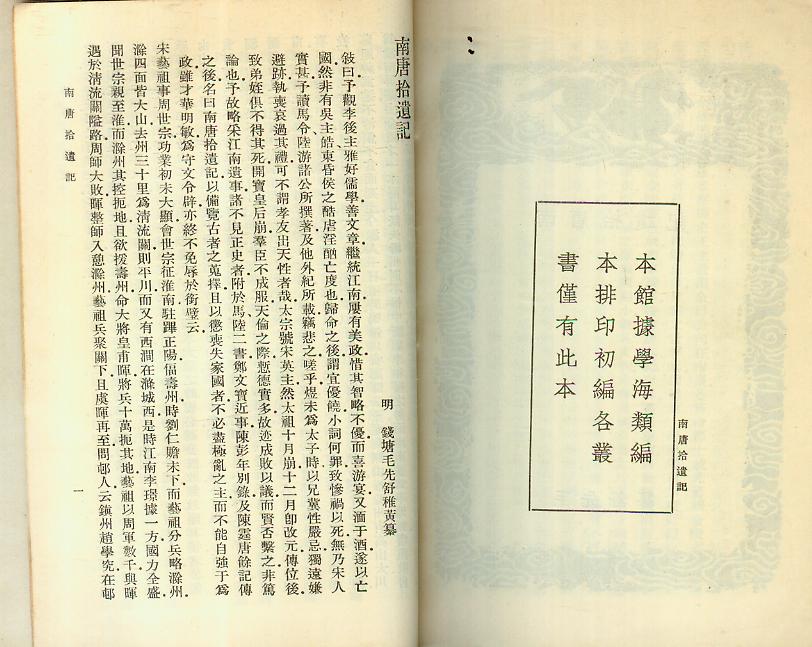 本館據學海類編
本排印初編各叢
書僅有此本
南唐拾遺記
南唐拾遺記
明 錢塘毛先舒稚黃纂
敍曰予觀李後主雅好儒學善文章繼統江南屢有美政惜其智略不優而喜游宴又湎于酒遂以亡
國然非有吳主皓東昏侯之酷虐淫酗亡度也歸命之後謂宜優饒小詞何罪致慘禍以死無乃宋人
實甚予讀馬令陸游諸公所撰著及他外紀所載竊悲之嗟乎煜未爲太子時以兄冀性嚴忌獨遠嫌
避跡執喪哀過其禮可不謂孝友出天性者哉太宗號宋英主然太祖十月崩十二月卽改元傳位後
致弟姪俱不得其死開寶皇后崩羣臣不成服天倫之際慙德實多故迹成敗以議而賢否繫之非篤
論也予故略采江南遺事諸不見正史者附於馬陸二書鄭文寶近事陳彭年別錄及陳霆唐餘記傳
之後名曰南唐拾遺記以備覽古者之蒐擇且以懲喪失家國者不必盡極亂之主而不能自強于爲
政雖才華明敏爲守文令辟亦終不免辱於銜璧云
宋藝祖事周世宗功業初未大顯會世宗征淮南駐蹕正陽偪壽州時劉仁贍未下而藝祖分兵略滁州
滁四面皆大山去州三十里爲清流關則平川而又有西澗在滁城西是時江南李璟據一方國力全盛
聞世宗親至淮而滁州其控扼地且欲援壽州命大將皇甫暉將兵十萬扼其地藝祖以周軍數千與暉
遇於清流關隘路周師大敗暉整師入憩滁州藝祖兵聚關下且虞暉再至問邨人云鎮州趙學究在邨
南唐拾遺記
一